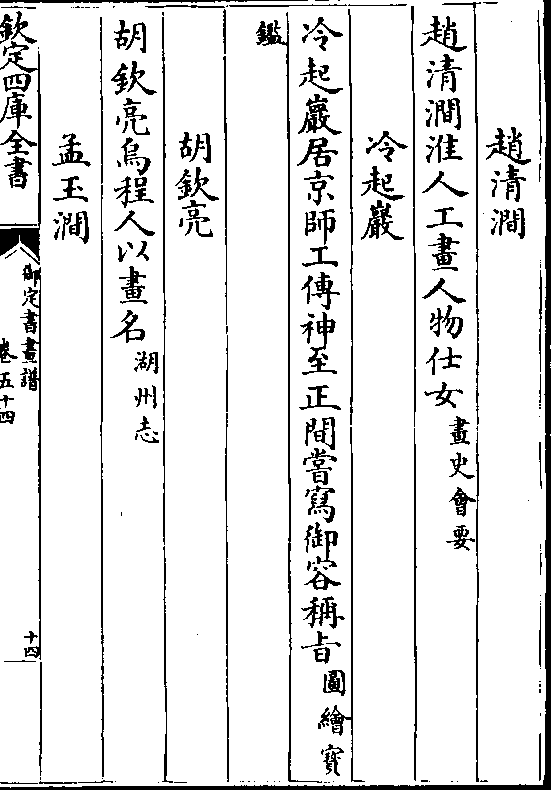 趙清澗
趙清澗淮人工畫人物仕女畫史會要
冷起巖
冷起巖居京師工傳神至正間嘗寫御容稱旨圖繪寳
鑑
胡欽亮
胡欽亮烏程人以畫名湖州志
孟玉澗
欽定四庫全書
御定書畫譜
卷五十四
十四